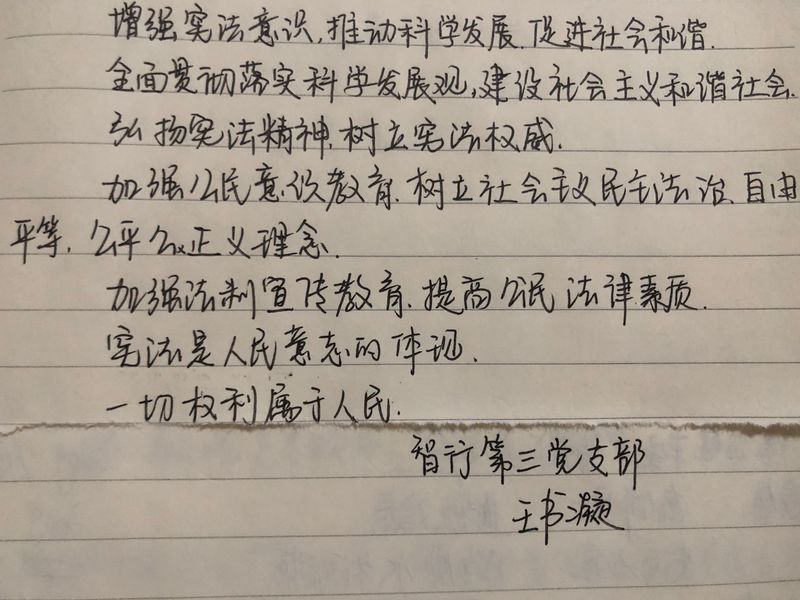 增强宪法意识,推动科学发展.促进社会和谐.
全面贯彻落实科学发展观,建设社会主义和谐社会.
弘扬宪法精神.树立宪法权威.
加强公民意识教育.树立社会主义民主法治、自由
平等.公平公正正义理念.
加强法制宣传教育.提高公民法律素质.
宪法是人民意志的体现.
一切权利属于人民.
智行第三党支部
王书凝